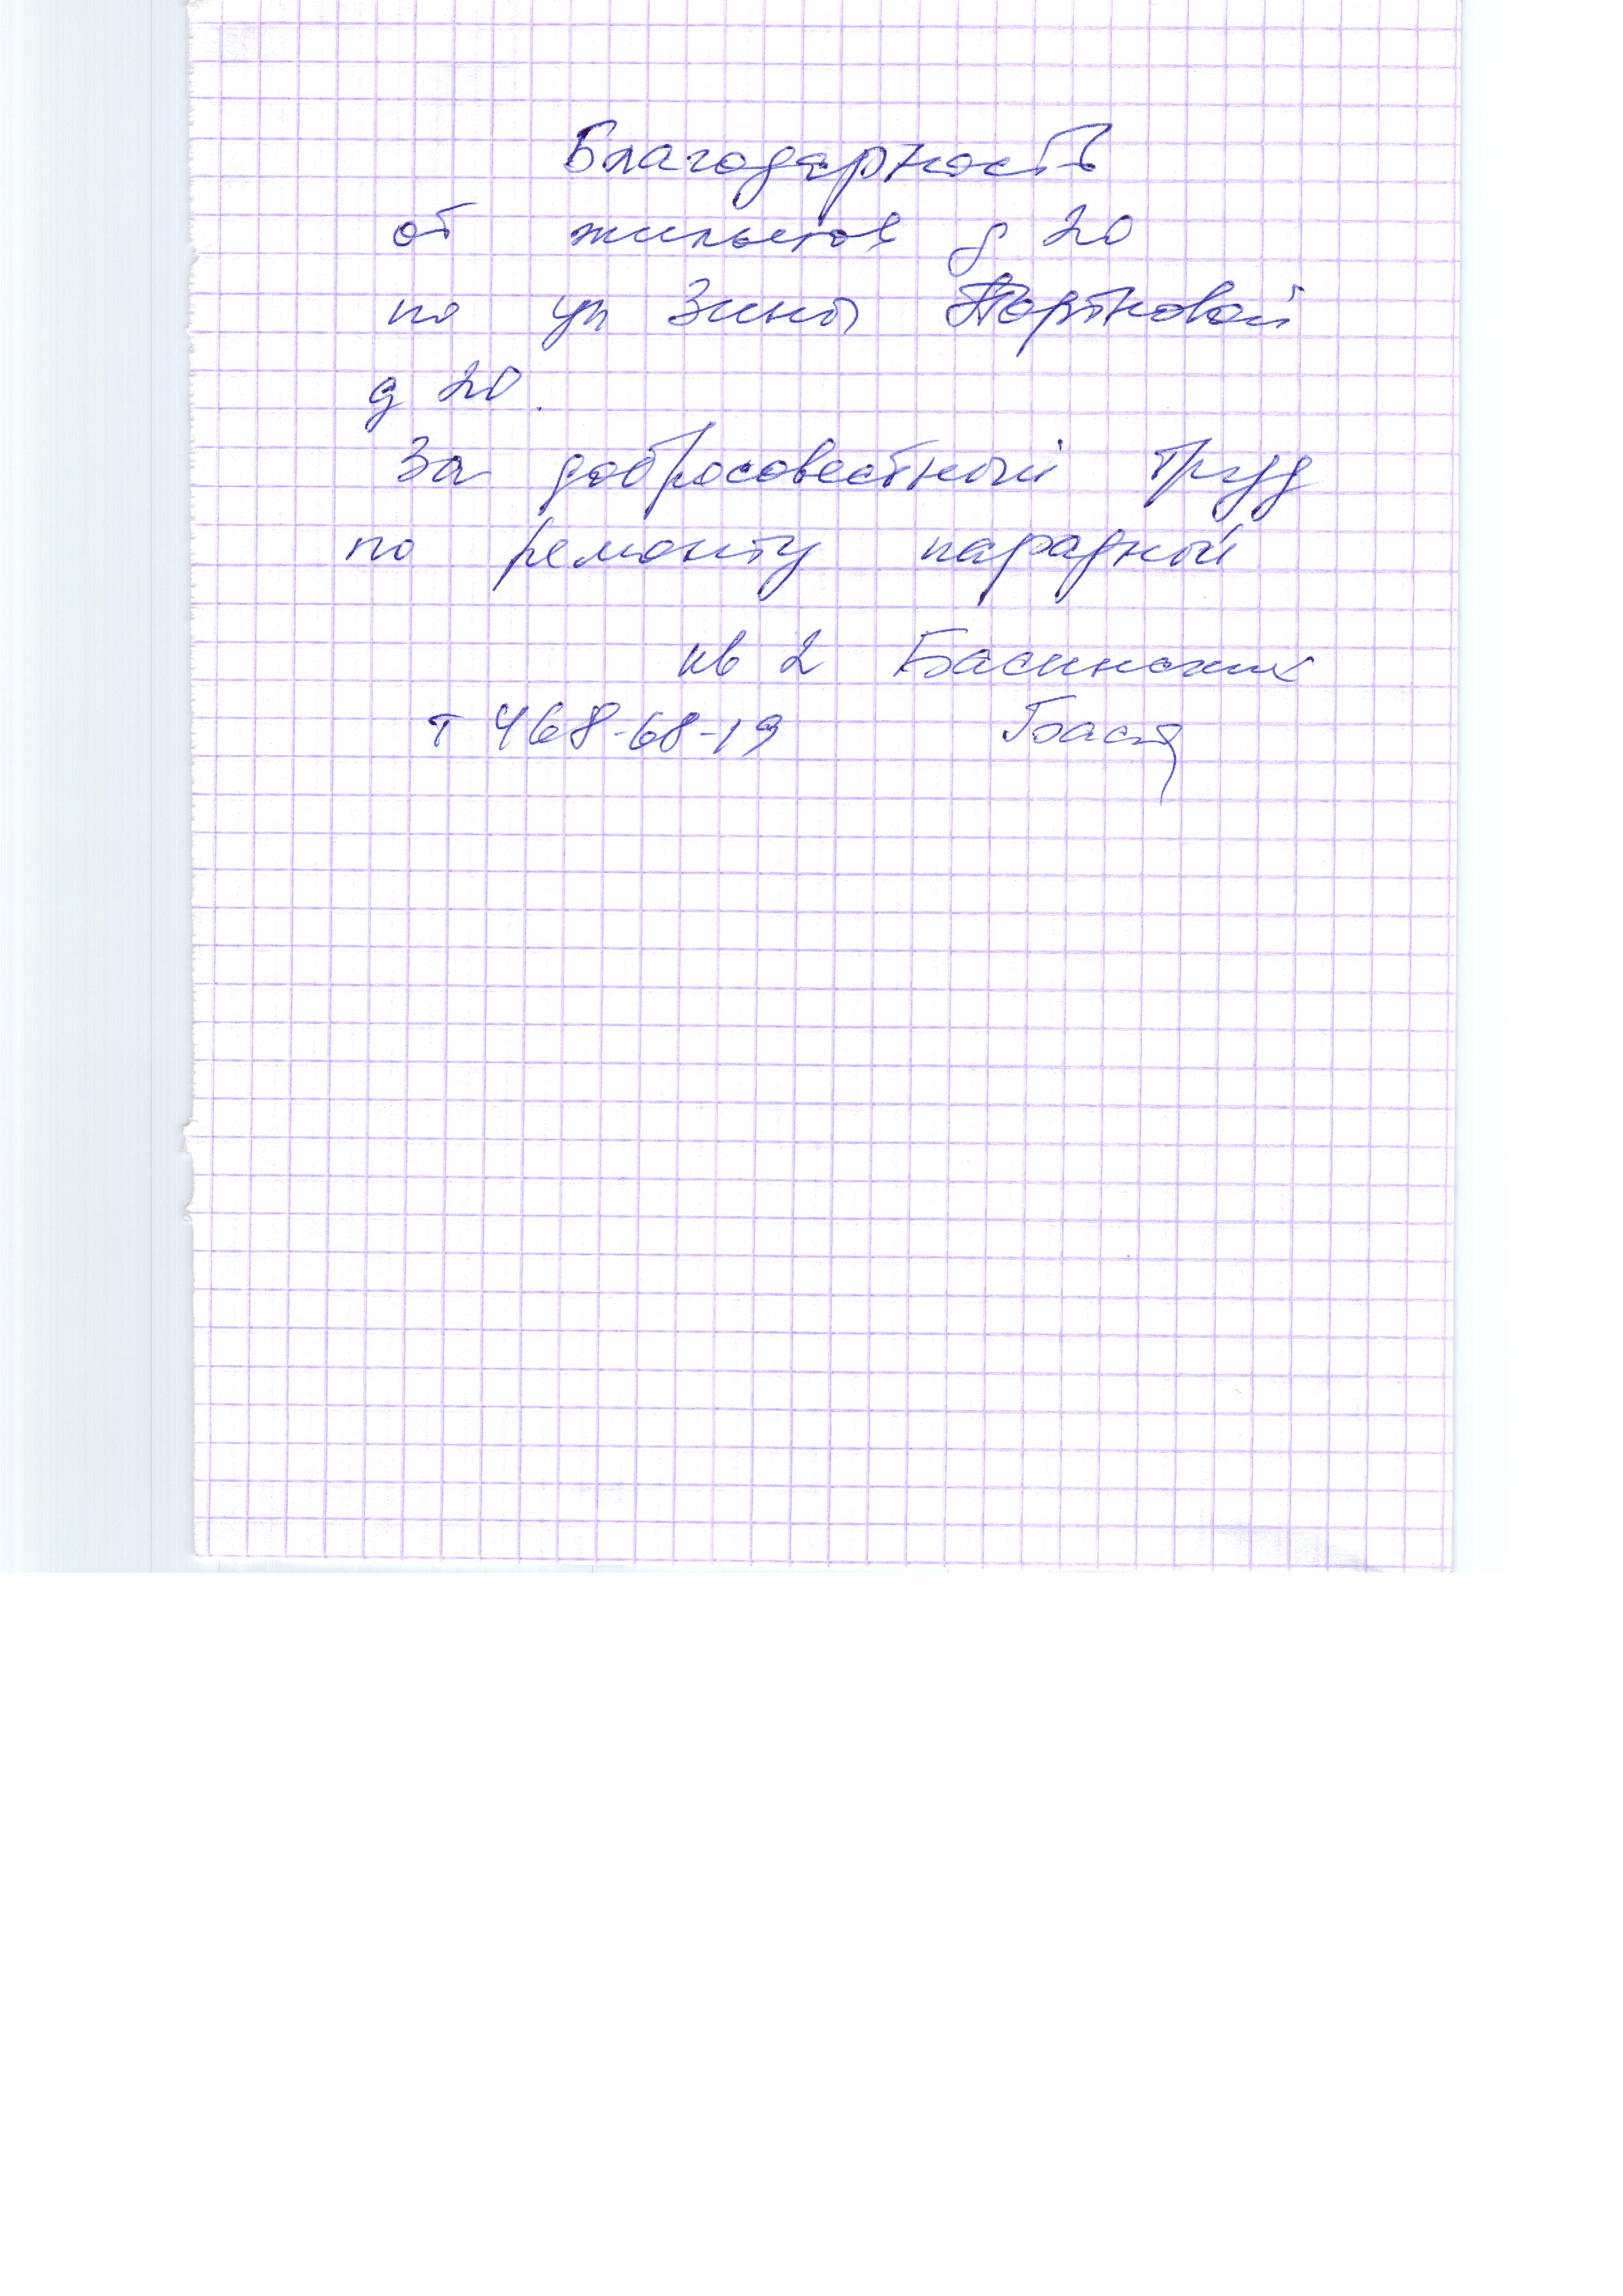 Благодарность
от жильцов д 20
по ул Зины Портновой
д 20.
За добросовестный труд
по ремонту парадной
кв 2 Басинских
т 468-68-19